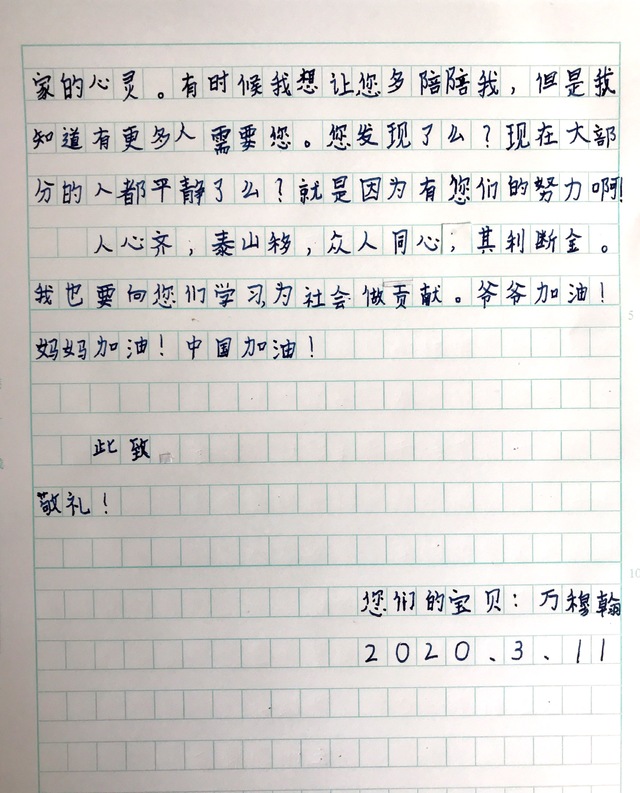 家的心灵。有时候我想让您多陪陪我，但是我
知道有更多人需要您。您发现了么？现在大部
分的人都平静了么？就是因为有您们的努力啊！
人心齐，泰山移，众人同心，其利断金。
我也要向您们学习，为社会做贡献。爷爷加油！
妈妈加油！中国加油！
此致
敬礼！
您们的宝贝：万穆翰
2020.3.11
5
10